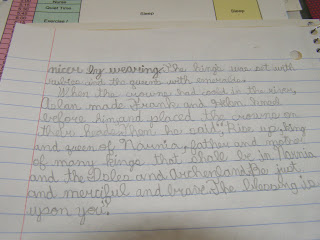 Name
Quiet Time
Exercise /
Game:
Game:
nicer by wearing. The king's was set with
rubies and the queen's with emeralds.
When the crowns had cooled in the river,
Aslan made Frank and Helen kneel
before him and placed the crowns on
their heads. Then he said, "Rise up, king
and queen of Narnia, father and mother
of many kings that shall be in Narnia
and the Isles and Archenland. Be just
and merciful and brave. The blessing is
upon you."